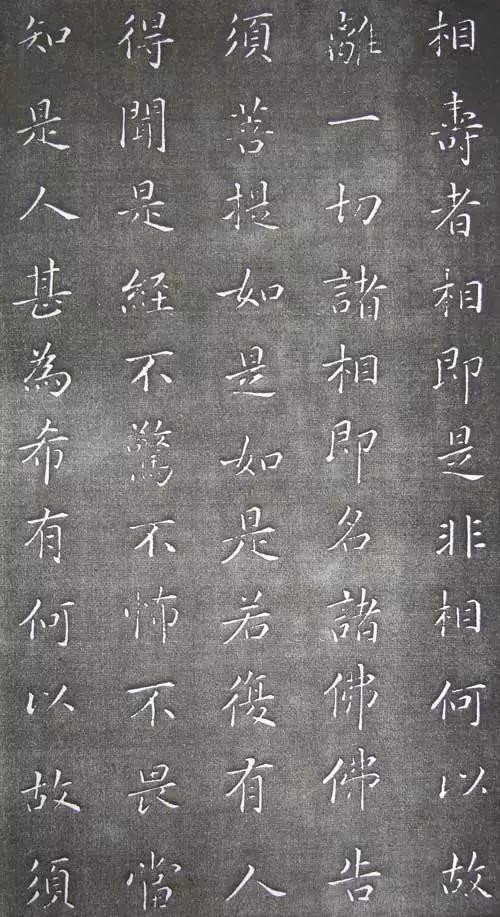 相壽者相即是非相何以故
離一切諸相即名諸佛佛告
須菩提如是如是若復有人
得聞是経不驚不怖不畏當
知是人甚為希有何以故須